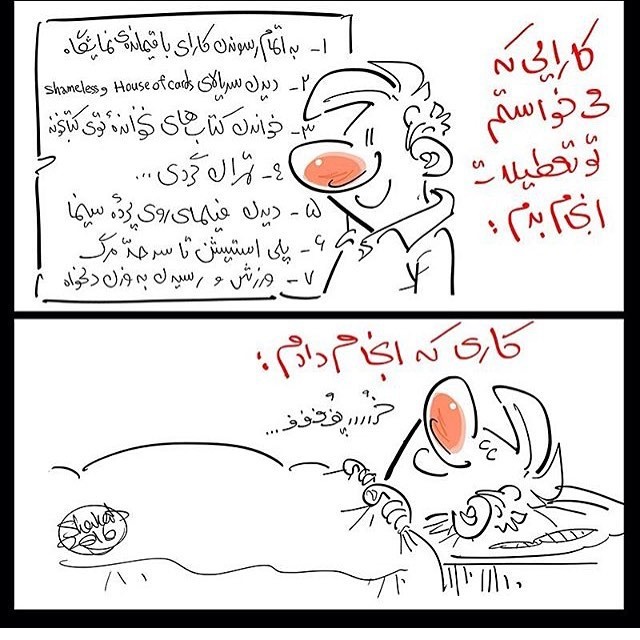 کارایی که
می خواستم
تو تعطیلات
انجام بدم:
۱- به اتمام رسوندن کارای باقیمانده‌ی نمایشگاه
۲- دیدن سریالای House of cards و Shameless
۳- خواندن کتاب های نخوانده توی کتابخونه
۴- تهران گردی ...
۵- دیدن فیلمای روی پرده سینما
۶- پلی استیشن تا سر حدّ مرگ
۷- ورزش و رسیدن به وزن دلخواه
کاری که انجام دادم:
خُررررر پُفففف...